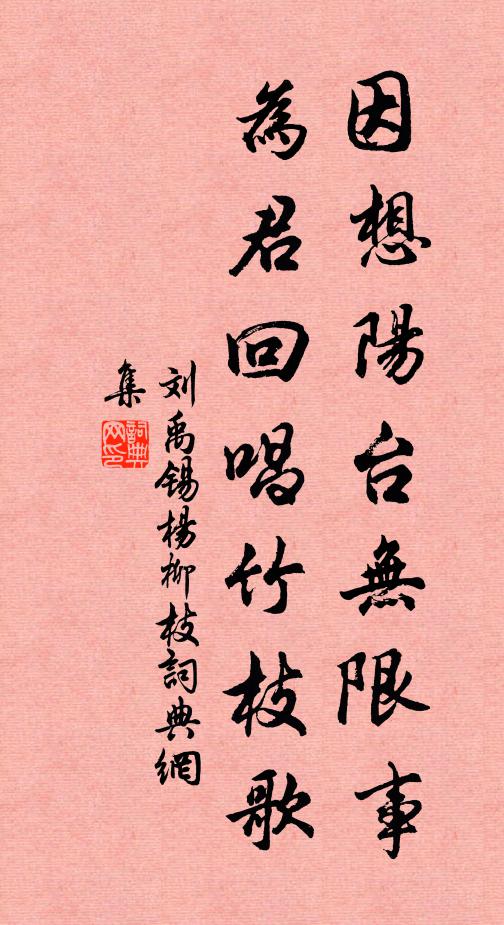 因想陽台無限事
為君回唱竹枝歌
刘禹锡楊柳枝詞典網
集
詞典
网印